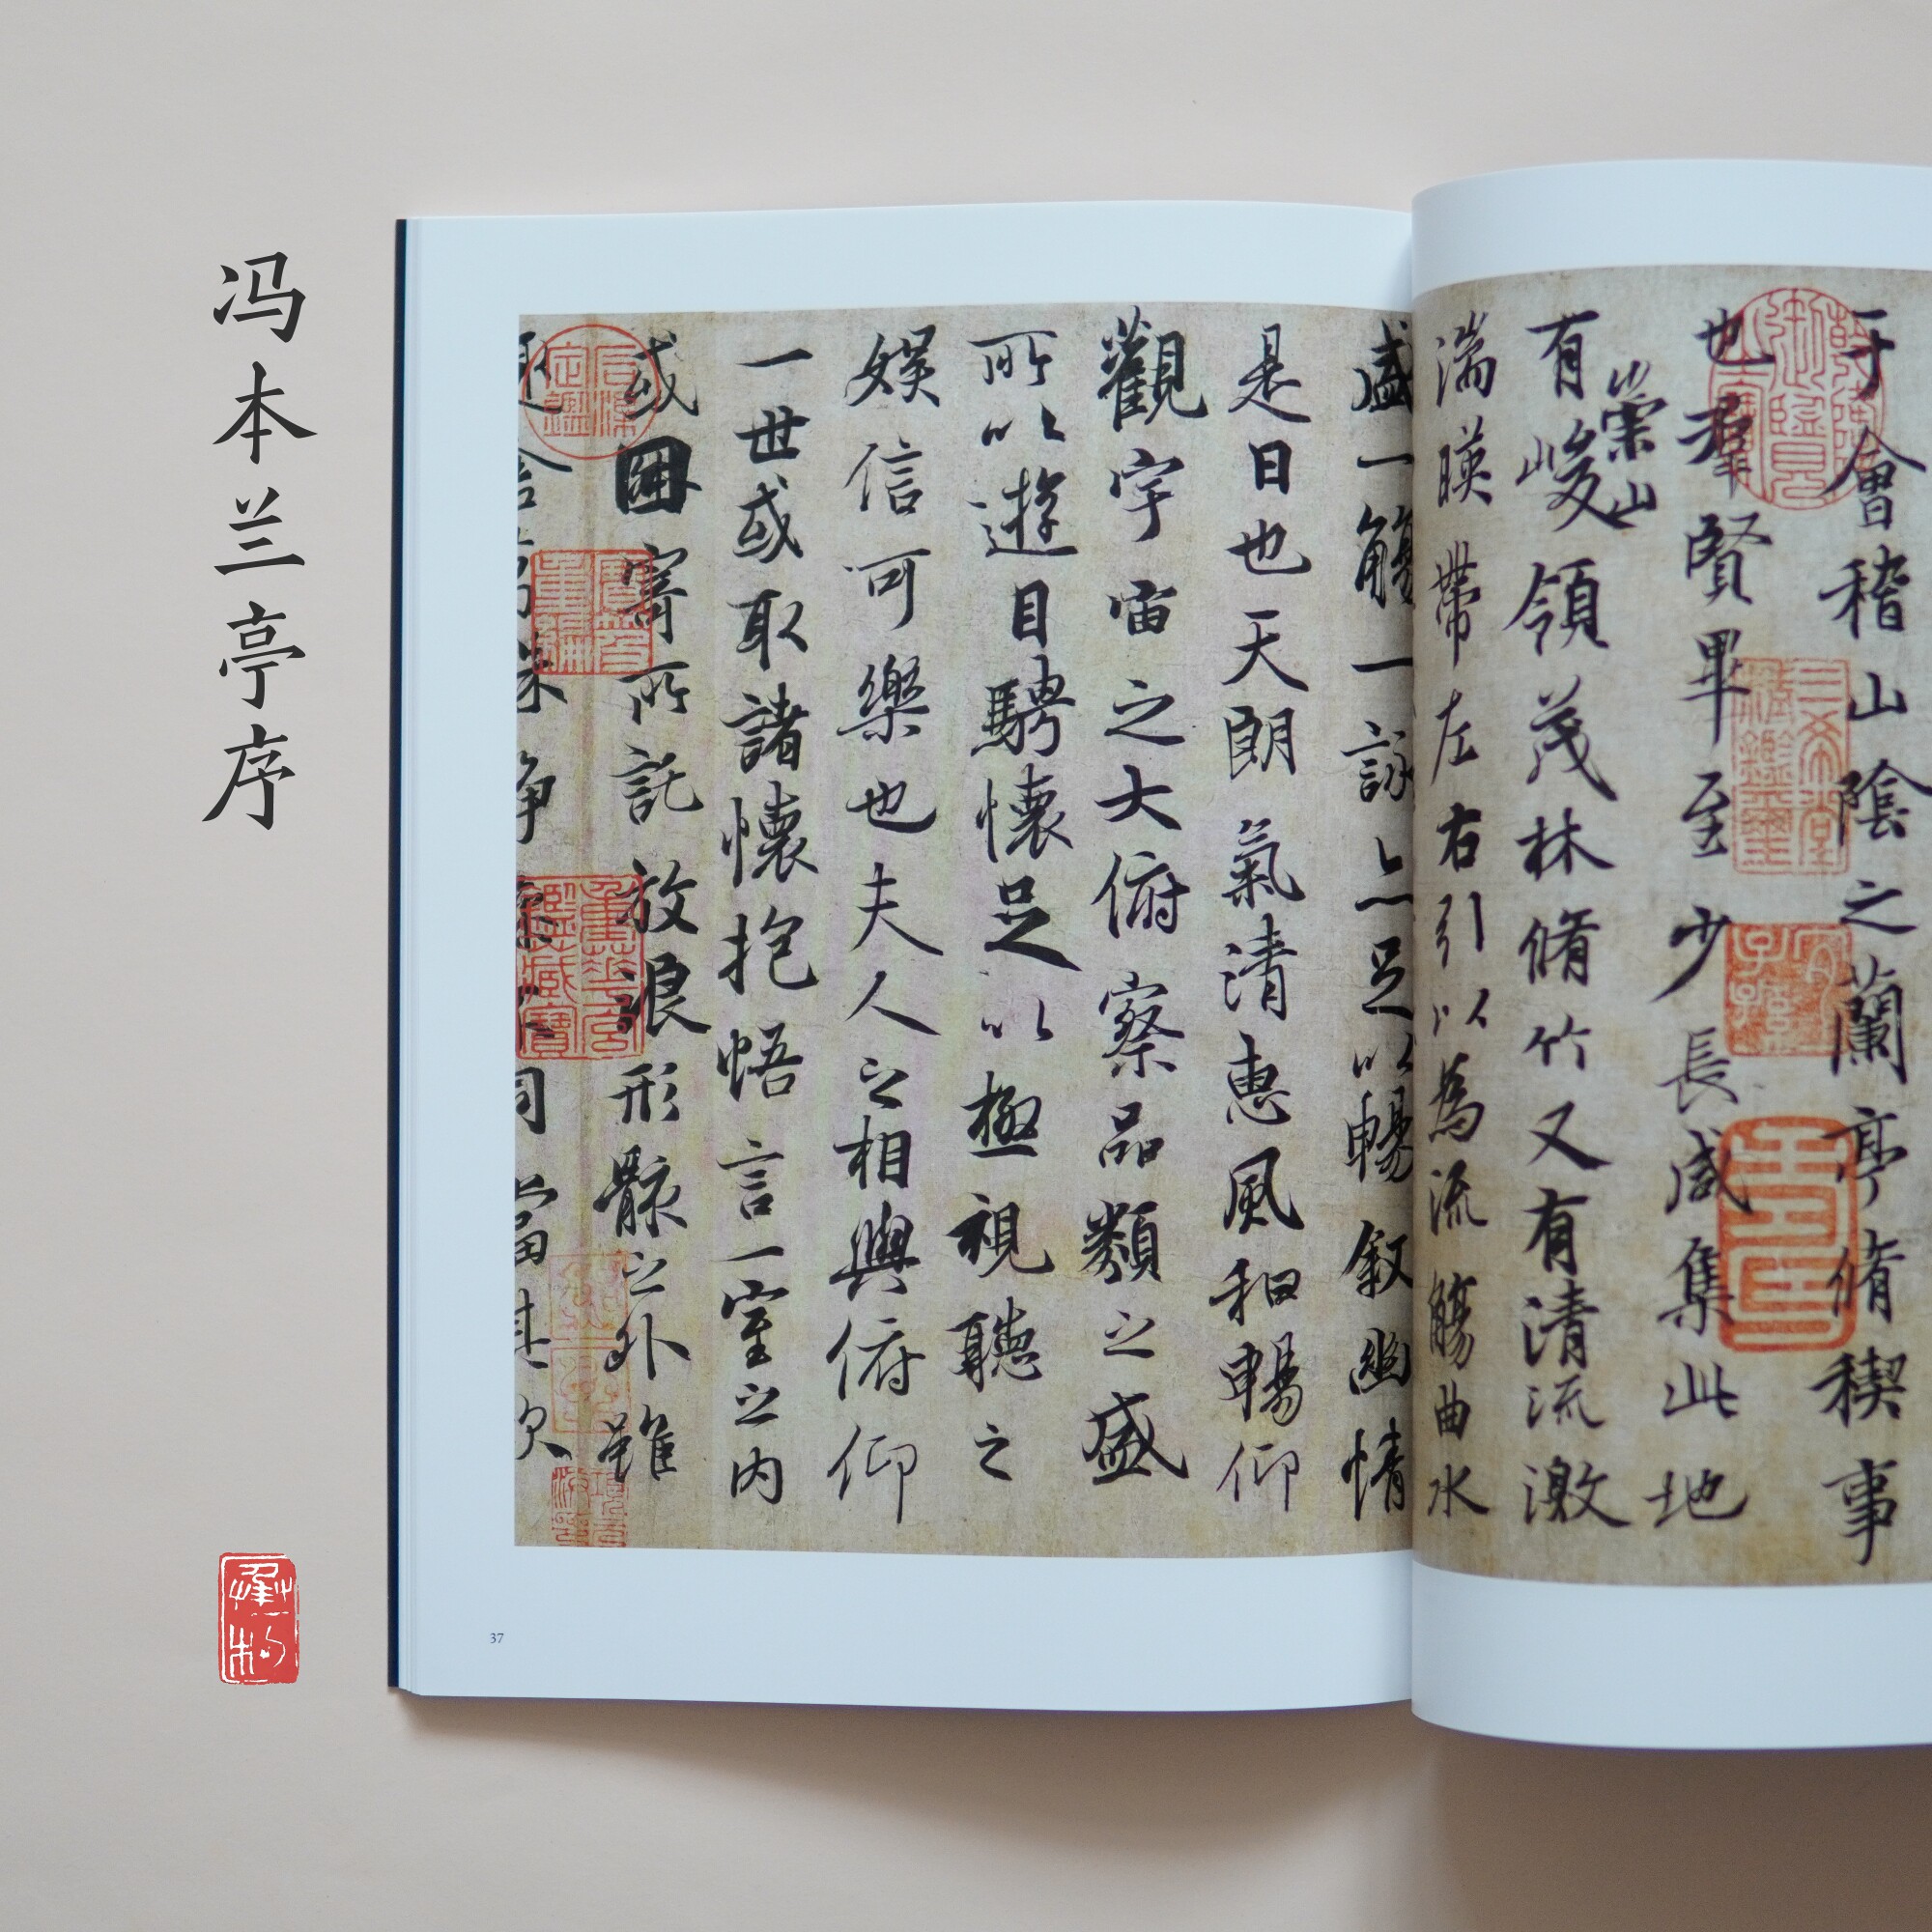 冯本兰亭序
于會稽山陰之蘭亭脩稧事
也羣賢畢至少長咸集此地
崇山
有峻領茂林脩竹又有清流激
湍暎帶左右引以為流觴曲水
盛一觴一詠亦足以暢敘幽情
是日也天朗氣清惠風和暢仰
觀宇宙之大俯察品類之盛
所以遊目騁懷足以極視聽之
娛信可樂也夫人之相與俯仰
一世或取諸懷抱悟言一室之內
或因寄所託放浪形骸之外雖
同當其欣
三希堂精鑑璽
宜子孫
石渠定鑑
寶笈重編
重華宮鑑藏寶
37